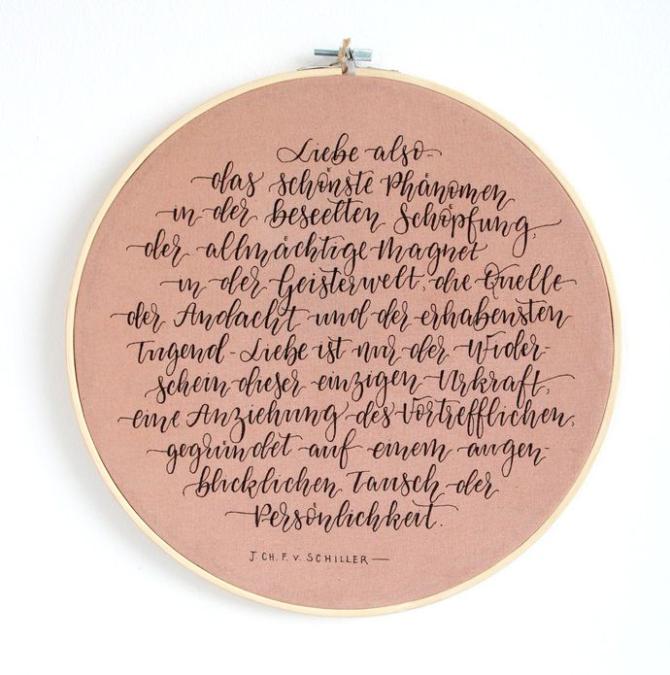 Liebe also
das schönste Phänomen
in der beseelten Schöpfung,
der allmächtige Magnet
in der Geisterwelt, die Quelle
der Andacht und der erhabensten
Tugend - Liebe ist nur der Wider-
schein dieser einzigen Urkraft,
eine Anziehung des Vortrefflichen,
gegründet auf einem augen-
blicklichen Tausch der
Persönlichkeit.
J. CH. F. V. SCHILLER